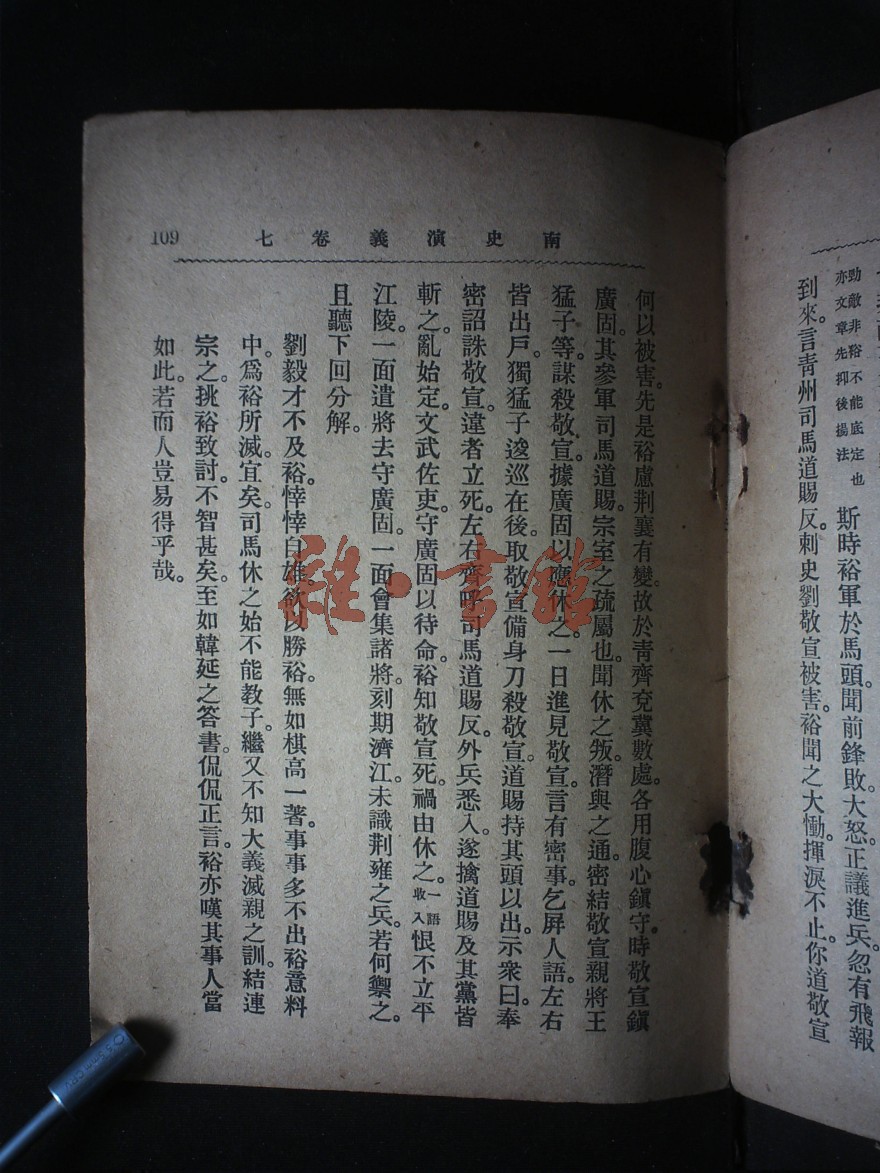 勁敵非裕不能底定也
亦文章先抑後揚法
斯時裕軍於馬頭。聞前鋒敗。大怒。正議進兵。忽有飛報
到來。言青州司馬道賜反。刺史劉敬宣被害。裕聞之大慟。揮淚不止。你道敬宣
南史演義卷七
109
何以被害。先是裕慮荆襄有變。故於青齊兗冀數處。各用腹心鎭守。時敬宣鎭
廣固。其參軍司馬道賜。宗室之疏屬也。聞休之叛。潛與之通。密結敬宣親將王
猛子等。謀殺敬宣。據廣固以應休之。一日進見敬宣。言有密事。乞屏人語。左右
皆出戶。獨猛子逡巡在後。取敬宣備身刀殺敬宣。道賜持其頭以出。示衆曰。奉
密詔誅敬宣。違者立死。左右齊呼司馬道賜反。外兵悉入。遂擒道賜及其黨皆
斬之。亂始定。文武佐吏。守廣固以待命。裕知敬宣死。禍由休之。一語收入恨不立平
江陵。一面遣將去守廣固。一面會集諸將。刻期濟江。未識荆雍之兵。若何禦之。
且聽下回分解。
劉毅才不及裕。悻悻自雄。欲以勝裕。無如棋高一著。事事多不出裕意料
中。爲裕所滅。宜矣。司馬休之始不能教子。繼又不知大義滅親之訓。結連
宗之。挑裕致討。不智甚矣。至如韓延之答書。侃侃正言。裕亦嘆其事人當
如此。若而人豈易得乎哉。
雜·書館